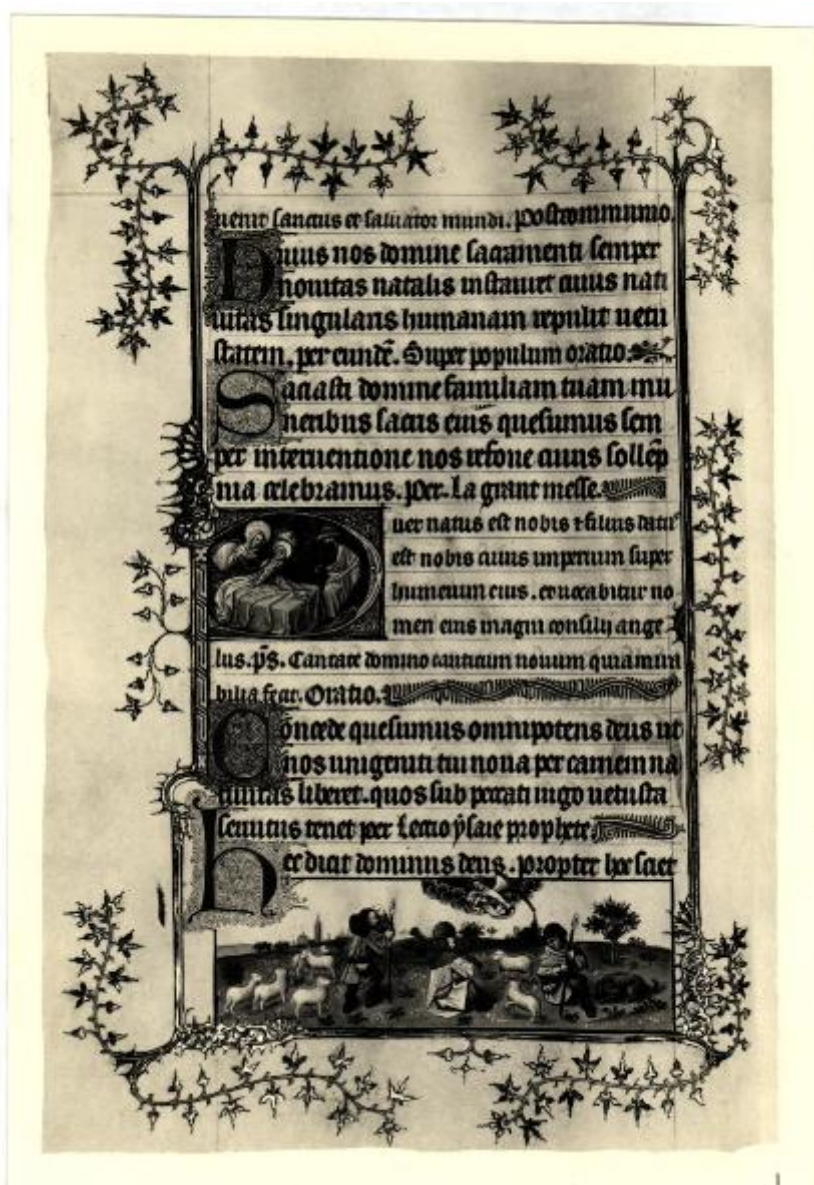 uenit sanctus et saluator mundi. Postcommunio.
Huius nos domine sacramenti semper
nouitas natalis instauret cuius nati
uitas singularis humanam repulit uetu
statem. per eundē. Super populum oratio.
Saciasti domine familiam tuam mu
neribus sacris eius quesumus sem
per interuentione nos refoue cuius sollēp
nia celebramus. Per. La grant messe.
Puer natus est nobis ⁊ filius datus
est nobis cuius imperium super
humerum eius. et uocabitur no
men eius magni consilij ange
lus. p̄s. Cantate domino canticum nouum quia mira
bilia fecit. Oratio.
Concede quesumus omnipotens deus ut
nos unigeniti tui noua per carnem na
tiuitas liberet. quos sub peccati iugo uetusta
seruitus tenet per Lectio ysaie prophete.
Hec dicit dominus deus. propter hoc sciet